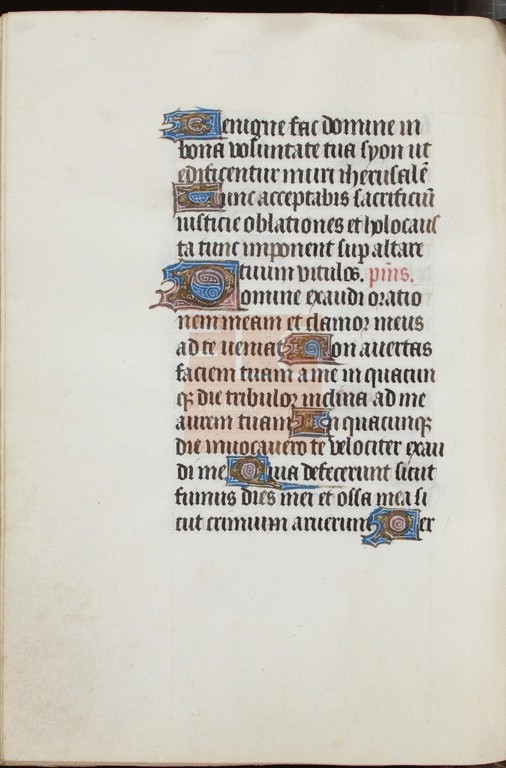 Benigne fac domine in
bona voluntate tua syon ut
edificentur muri iherusalē
Tunc acceptabis sacrificiū
iusticie oblationes et holocaus
ta tunc imponent sup altare
tuum vitulos. p̄us.
Domine exaudi oratio
nem meam et clamor meus
ad te veniat Non avertas
faciem tuam a me in quacun
qꝫ die tribulor inclina ad me
aurem tuam In quacunqꝫ
die invocavero te velociter exau
di me Quia defecerunt sicut
fumus dies mei et ossa mea si
cut cremium aruerunt Per